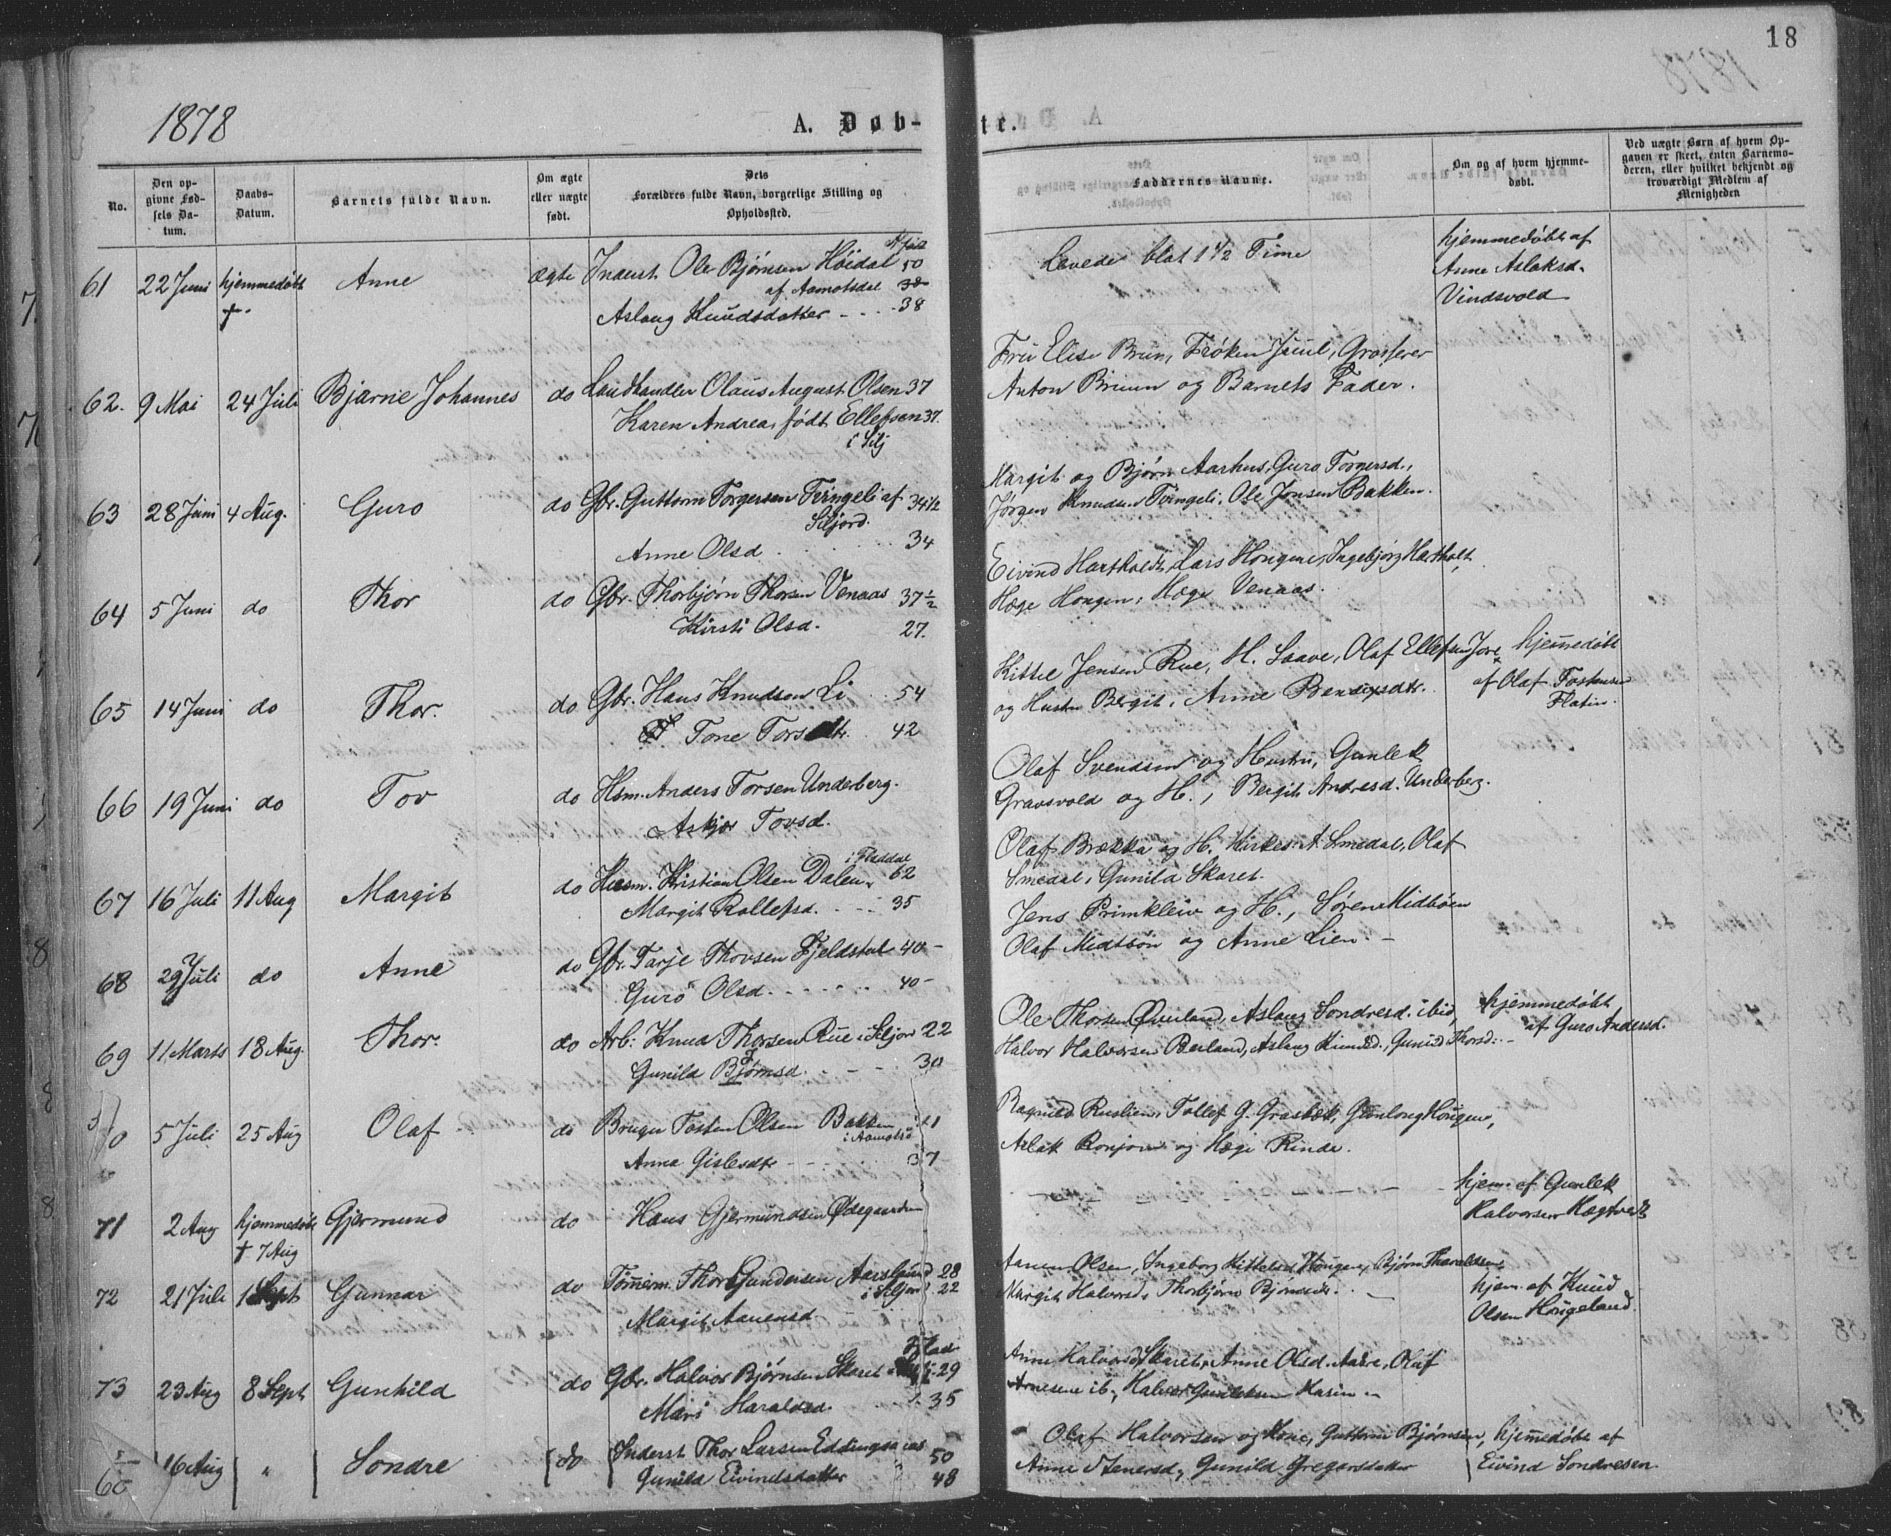 18
1878
A. Døb-
te.
No.
Den op-
givne Fød-
sels Da-
tum.
Daabs-
Datum.
Barnets fulde Navn.
Om ægte
eller uægte
født.
Dets
Forældres fulde Navn, borgerlige Stilling og
Opholdssted.
Faddernes Navne.
Om og af hvem hjemme-
døbt.
Ved uægte Børn af hvem Op-
gaven er skeet, enten Barnemo-
deren, eller hvilket bekjendt og
troværdigt Medlem af
Menigheden
61 22 Juni hjemmedøbt Anne ægte Inderst Ole Bjørnsen Høidal 50
af Aamotsdal 38
Aslaug Knudsdatter 38
Levede blot 1 1/2 Time
hjemmedøbt af
Anne Aslaksd.
Vindsvold
62. 9 Mai 24 Juli Bjarne Johannes do Landhandler Olaus August Olsen 37
Karen Andrea, født Ellefsen 37.
i Silj
Fru Elise Brun, Frøken Juul, Grosserer
Anton Bruun og Barnets Fader.
63 28 Juni 4 Aug. Guro do Gbr. Guttorm Torgersen Tvingeli af 34 1/2
Siljord.
Anne Olsd 34
Margit og Bjørn Aarhus, Guro Torgersd.,
Jørgen Knudsen Tvingeli, Ole Jonsen Bakken.
64 5 Juni do Thor do Gbr. Thorbjørn Thorsen Venaas 37 1/2
Kirsti Olsd. 27.
Eivind Hartholdt, Lars Hongene, Ingebjørg Hartholt,
Hæge Hongen, Hæge Venaas.
65 14 Juni do Thor. do Gbr. Hans Knudsen Li 54
Tone Torsdtr. 42
Kittil Jensen Rue, H. Laave, Olaf Ellefsen Jore
og Hustru Bergit, Anne Bendixsdtr.
hjemmedøbt
af Olaf Fostensen
Flatin.
66 19 Juni do Tov do Hsm. Anders Torsen Underberg.
Askjer Tovsd.
Olaf Svendsen og Hustru, Gunlek
Gravsvold og H., Bergit Andresd. Underberg.
67 16 Juli 11 Aug Margit do Husm. Kristian Olsen Dalen 62
i Fladdal
Margit Rollefsd. 35
Olaf Brække og H. Kirkes. A. Smedal, Olaf
Smedal, Gunild Skaret.
68 29 Juli do Anne do Gbr. Tarje Thovsen Fjeldstul 40-
Guro Olsd. 40-
Jens Brimkleiv og H., Søren Midbøen
Olaf Midtbøn og Anne Lien.
69 11 Marts 18 Aug. Thor. do Arb. Knud Thorsen Rue i Siljor 22
Gunild Bjørnsd. 30
Ole Thorsen Øverland, Aslaug Sondresd. ibid,
Halvor Halvorsen Berland, Aslaug Knudsd., Gunild Thorsd.
hjemmedøbt
af Guro Andersd.
5 Juli 25 Aug Olaf do Bruger Tosten Olsen Bakken
i Aamotsd
Anna Gislesdtr 37
Ragnild Rustien, Tollef G. Grasbek, Gunloug Hougen,
Aslak Ronjom og Hæge Rinde.
71 2 Aug hjemmedøbt Gjermund do Hans Gjermundsen Ødegaarden
† 7 Aug
hjem. af Gunlek
Halvorsen Hægtvedt
72 21 Juli 1 Sept Gunnar do Tømmerm. Thor Gundersen Aarslaand 28
i Siljor 22
Margit Aanensd
Aanen Olsen, Ingeborg Kittelsd Hougen, Bjørn Tharaldsen,
Margit Halvorsd, Thorbjørn Bjørnsdtr.
hjem. af Knud
Olsen Hougeland.
73 23 Aug 8 Sept Gunhild do Gbr. Halvor Bjørnsen Skaret 29
Mari Haraldsd. 35
Anne Halvorsd Skaret, Anne Olsd. Aase, Olaf
Arnesen ib., Halvor Gunleksen Hasin
16 Aug " Sondre do Inderst Thor Larsen Eddingsaas 50
Gunild Eivindsdatter 48
Olaf Halvorsen og Kone, Guttorm Bjørnsen,
Anne Stenersd, Gunild Gregarsdatter
hjemmedøbt af
Eivind Sondresen